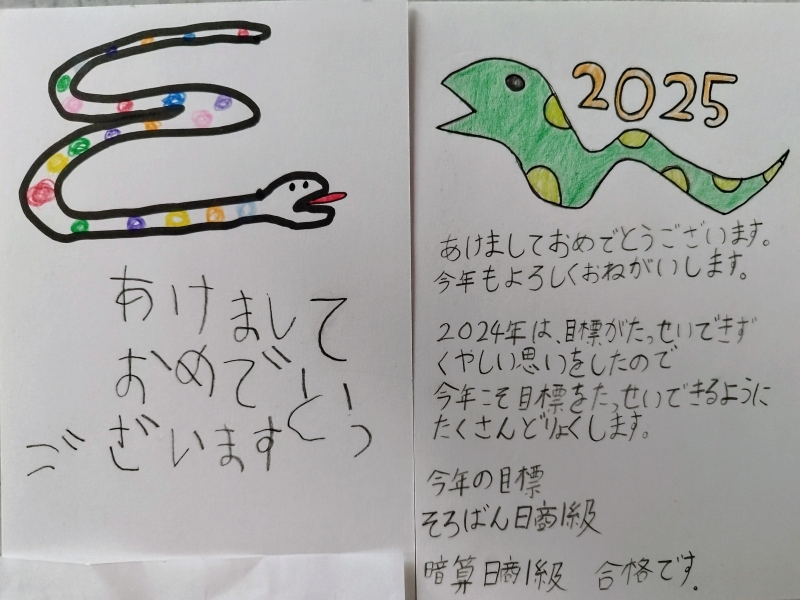 あけまして
おめでとう
ございます
2025
あけましておめでとうございます。
今年もよろしくおねがいします。
2024年は、目標がたっせいできず
くやしい思いをしたので
今年こそ目標をたっせいできるように
たくさんどりょくします。
今年の目標
そろばん日商1級
暗算日商1級 合格です。